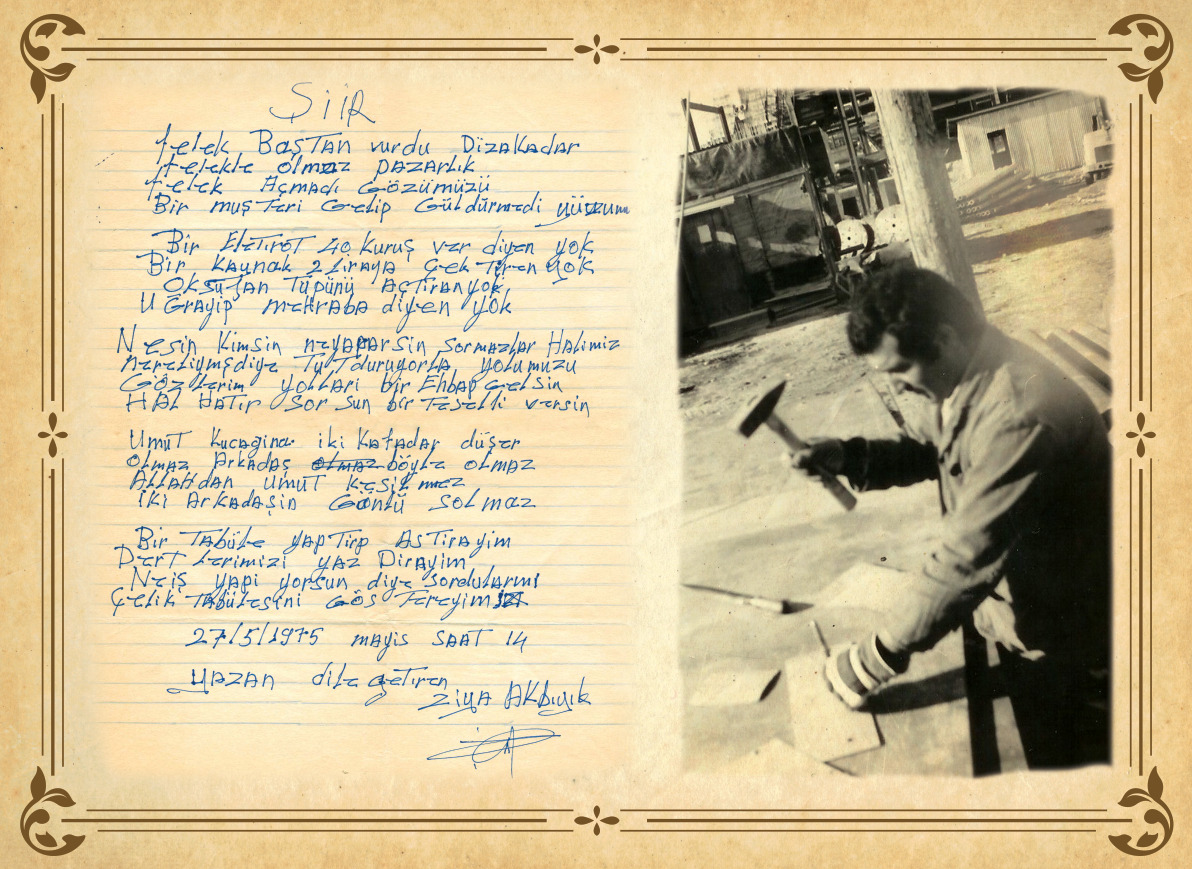 ŞiiR
felek BaşTAN vurdu DizaKadar
felekle olmaz pazarlık
felek Açmadı Gözümüzü
Bir muşTeri Gelip Güldürmedi yüzzumu
Bir EleTiroT 40 Kuruş ver diyen yok
Bir Kaynak 2 Liraya Çek Tiren yok
OKsuJan Tüpünü AçTıranyok
UGrayip mehraba diyen yok
Nesin Kimsin neyaparsin sormazlar Halimiz
nereliymşdiye TuTduruyorla yolumuzu
Gözlerim yolları bir Ehbap Gelsin
HAL HaTır Sor sun bir Teselli versin
UmuT Kucagina iki Kafadar düşer
Olmaz Arkadaş olmaz böyle olmaz
ALLAHdan UmuT Kesilmez
iki Arkadaşin Gönlü solmaz
Bir Tabüle yapTirp AsTirayim
DerT Lerimizi yaz Dirayim
Neiş yapi yorsun diye sordularmı
Çelik Tabülesini Gös Tereyim
27/5/1975 mayis SAAT 14
YAZAN dile getiren
Ziya AKbıyık